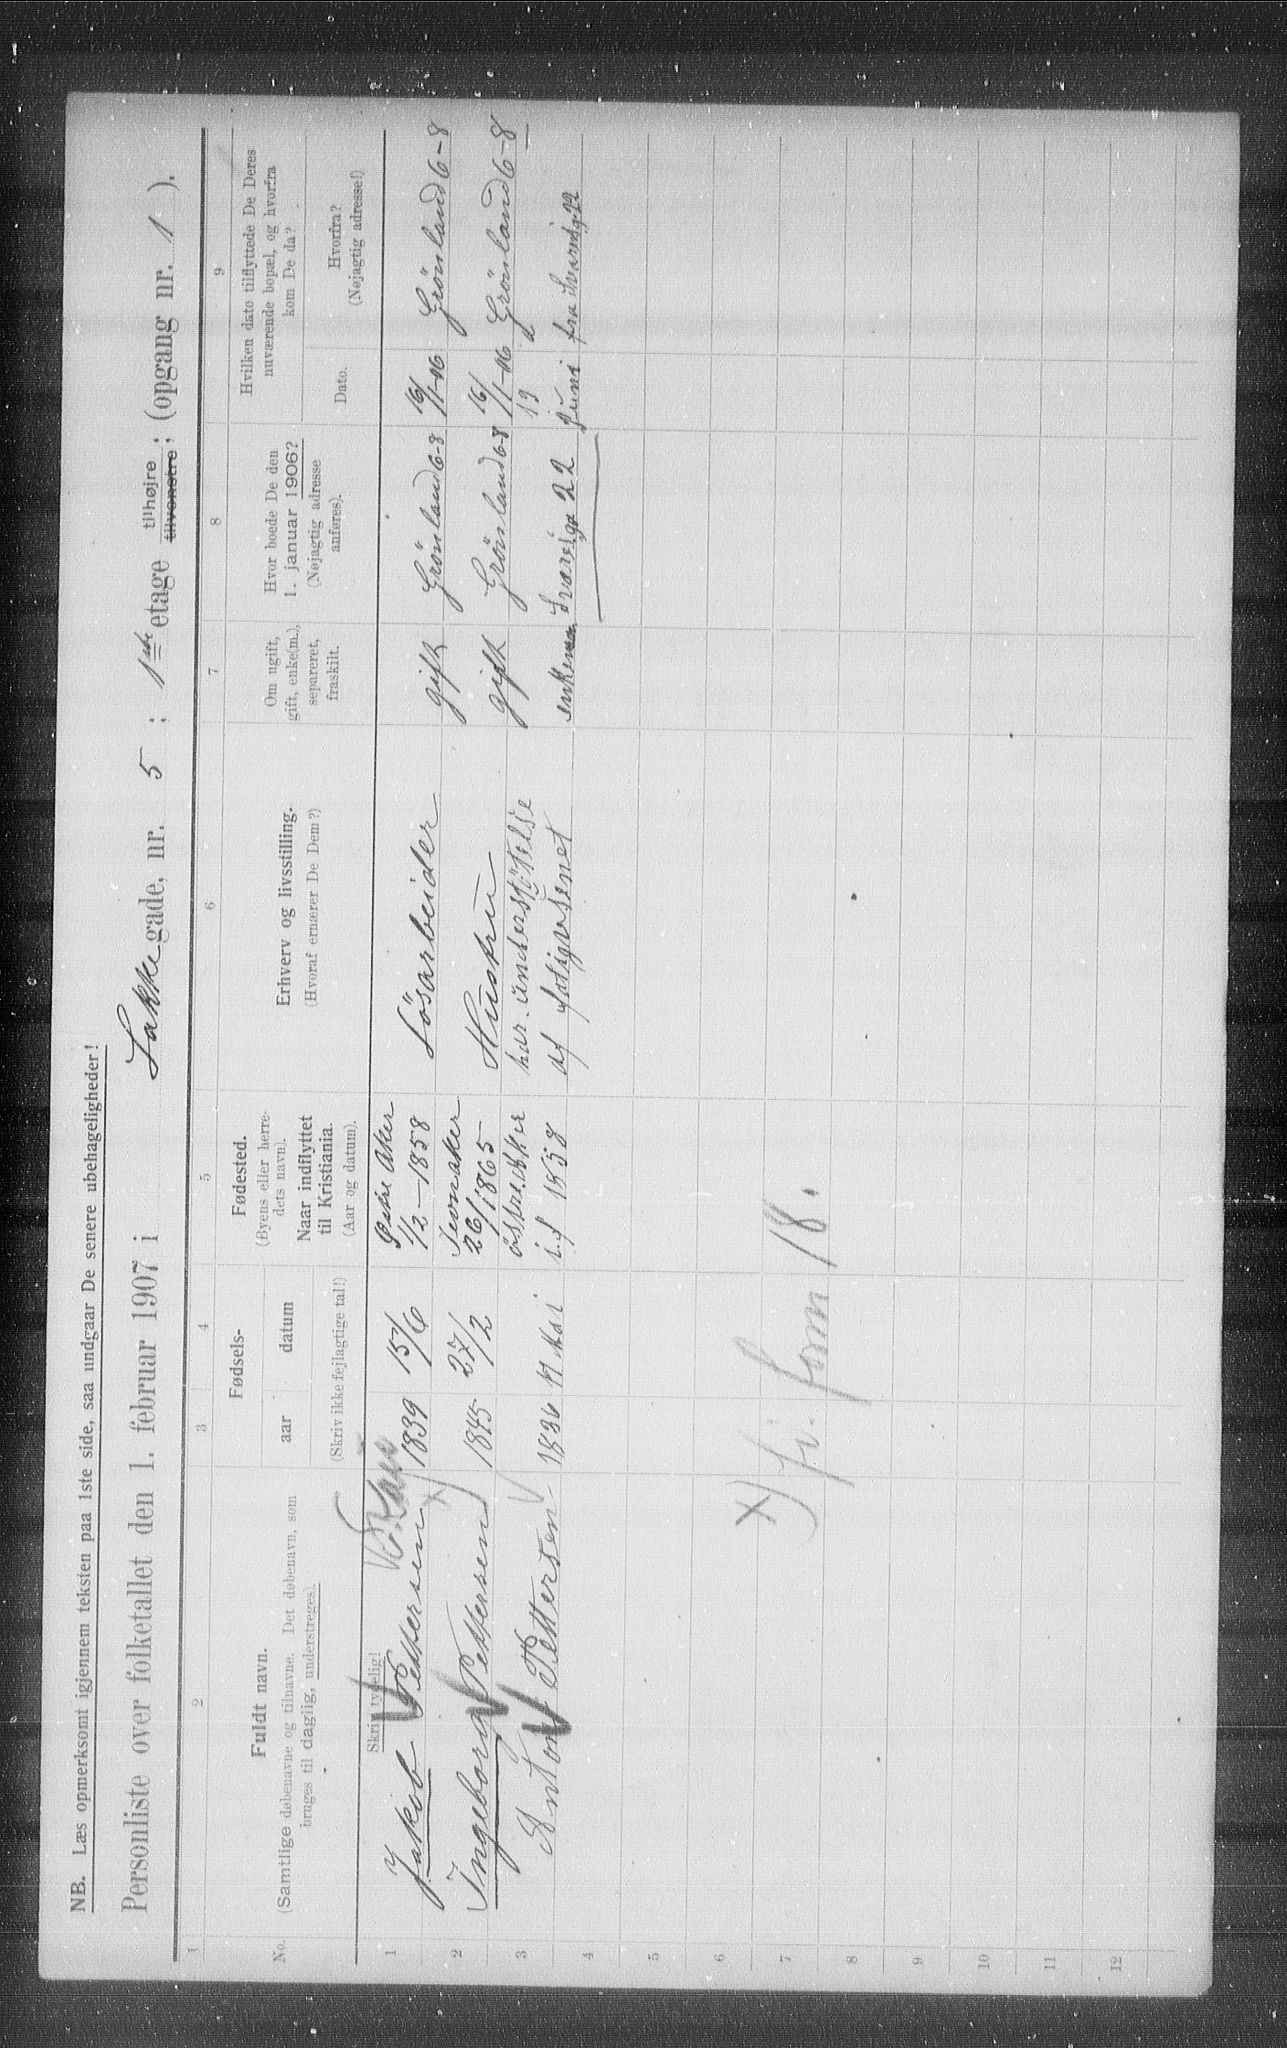 NB. Læs opmerksomt igjennem teksten paa 1ste side, saa undgaar De senere ubehageligheder!
Personliste over folketallet den 1. februar 1907 i Lakkegade, nr. 5 ; 1ste etage tilhøjre ; (opgang nr. 1 ).
tilvenstre
1 2 3 4 5 6 7 8 9
No.
Fuldt navn.
(Samtlige døbenavne og tilnavne. Det døbenavn, som
bruges til daglig, understreges).
Skriv tydelig!
Fødsels-
aar datum
(Skriv ikke fejlagtige tal!)
Fødested.
(Byens eller herre-
dets navn).
Naar indflyttet
til Kristiania.
(Aar og datum).
Erhverv og livsstilling.
(Hvoraf ernærer De Dem?)
Om ugift,
gift, enke(m.),
separeret,
fraskilt.
Hvor boede De den
1. januar 1906?
(Nøjagtig adresse
anføres).
Hvilken dato tilflyttede De Deres
nuværende bopæl, og hvorfra
kom De da?
Dato.
Hvorfra?
(Nøjagtig adresse!)
1 Jakob Pettersen 1839 15/6 Østre Aker 1/2-1858 Løsarbeider gift Grönland 6-8 16/1-06 Grönland 6-8
2 Ingeborg Pettersen 1845 27/2 26/1865 Hustru gift Grönland 6-8 16/1-06 Grönland 6-8
3 Anton Pettersen 1836 17 Mai i.f 1858 har understötelse
af fatigvesenet 22 19 juni fra
4
5
6
7
8
9
10
11
12
x) fom 18.